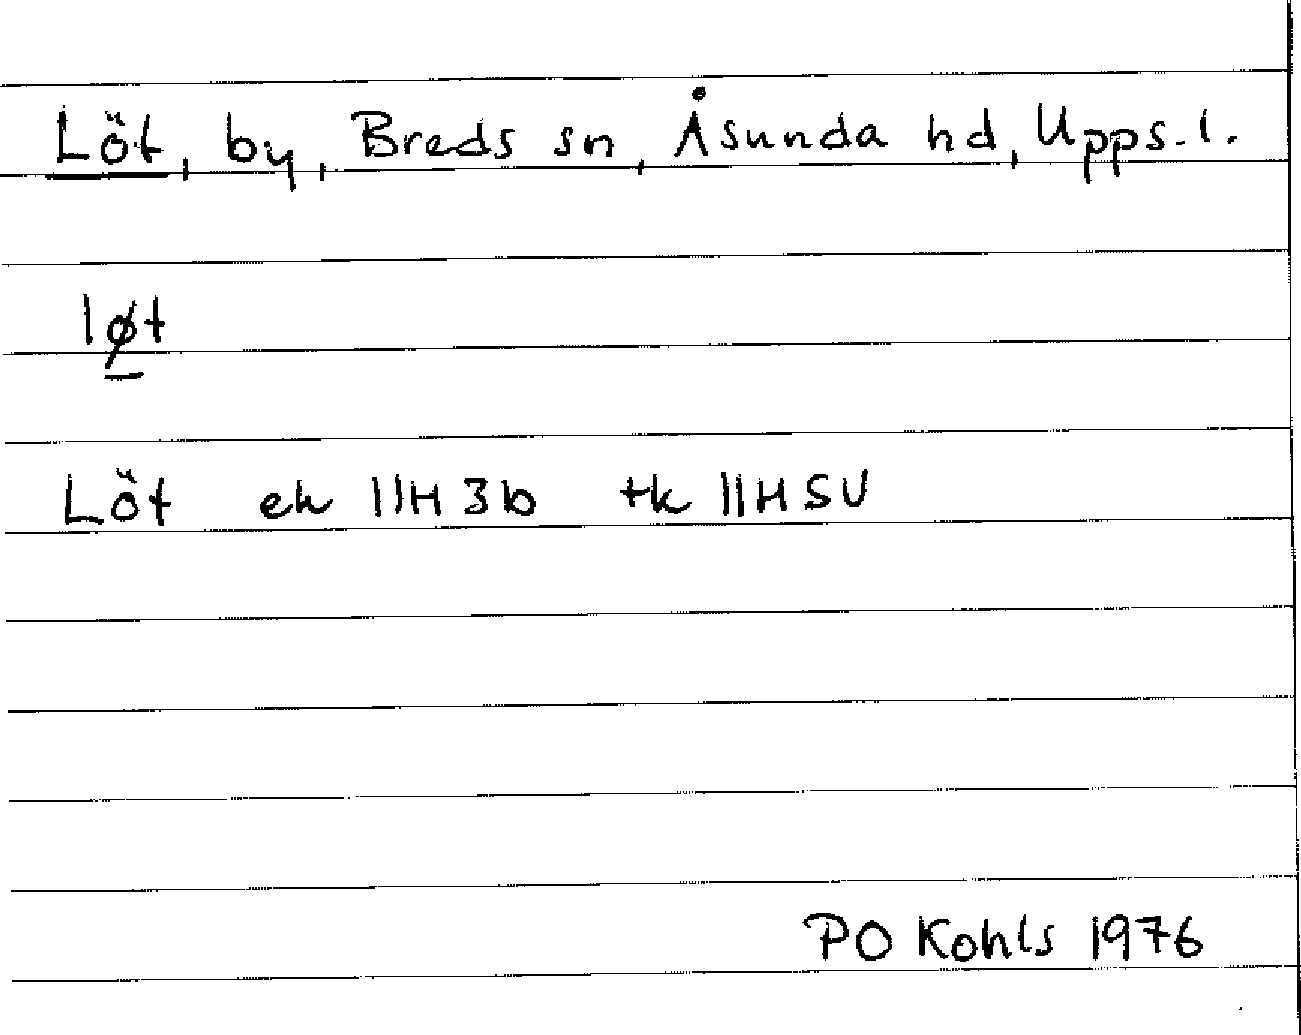 Löt, by, Breds sn, Åsunda hd, Upps. l.
løt
Löt ek 11H3b tk 11HSV
PO Kohls 1976